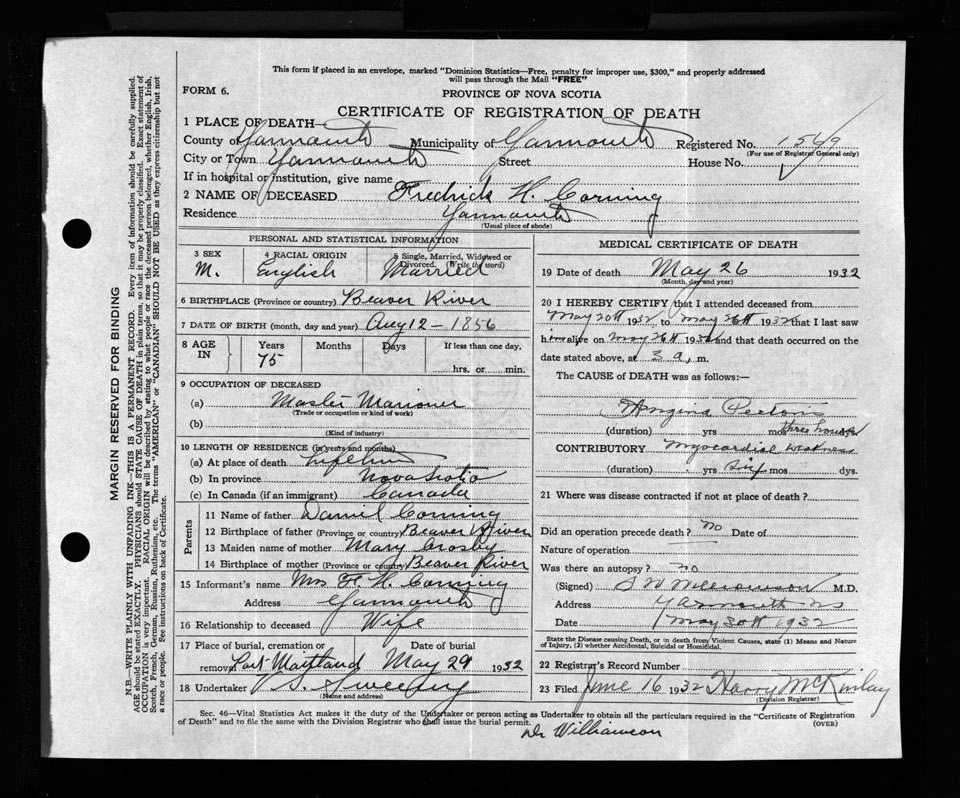 This form if placed in an envelope, marked "Dominion Statistics—Free, penalty for improper use, $300," and properly addressed
will pass through the Mail "FREE"
FORM 6.
PROVINCE OF NOVA SCOTIA
CERTIFICATE OF REGISTRATION OF DEATH
1 PLACE OF DEATH—
County of Yarmouth Municipality of Yarmouth Registered No. 1549
(For use of Registrar General only)
City or Town Yarmouth Street House No.
If in hospital or institution, give name
2 NAME OF DECEASED Fredrick H. Corning
Residence Yarmouth
(Usual place of abode)
PERSONAL AND STATISTICAL INFORMATION
3 SEX 4 RACIAL ORIGIN 5 Single, Married, Widowed or
Divorced. (Write the word)
M. English Married
6 BIRTHPLACE (Province or country) Beaver River
7 DATE OF BIRTH (month, day and year) Aug 12 - 1856
8 AGE IN Years Months Days If less than one day,
75 hrs. or min.
9 OCCUPATION OF DECEASED
(a) Master Mariner
(Trade or occupation or kind of work)
(b)
(Kind of industry)
10 LENGTH OF RESIDENCE (in years and months)
(a) At place of death Lifetime
(b) In province Nova Scotia
(c) In Canada (if an immigrant) Canada
Parents
11 Name of father Daniel Corning
12 Birthplace of father (Province or country) Beaver River
13 Maiden name of mother Mary Crosby
14 Birthplace of mother (Province or country) Beaver River
15 Informant's name Mrs F. H. Corning
Address Yarmouth
16 Relationship to deceased Wife
17 Place of burial, cremation or Date of burial
removal Port Maitland May 29 1932
18 Undertaker V. S. Sweeny
(Name and address)
MEDICAL CERTIFICATE OF DEATH
19 Date of death May 26 1932
(Month, day and year)
20 I HEREBY CERTIFY that I attended deceased from
May 20th 1932, to May 26th 1932 that I last saw
him alive on May 26th 1932 and that death occurred on
date stated above, at 3 a, m.
The CAUSE OF DEATH was as follows:—
Angina Pectoris
(duration) yrs mos three hours
CONTRIBUTORY Myocardial weakness
(duration) yrs six mos dys.
21 Where was disease contracted if not at place of death?
Did an operation precede death? no Date of
Nature of operation
Was there an autopsy? no
(Signed) Williamson M.D.
Address Yarmouth NS
Date May 30th 1932
State the Disease causing Death, or in death from Violent Causes, state (1) Means and Nature
of Injury, (2) whether Accidental, Suicidal or Homicidal.
22 Registrar's Record Number
23 Filed June 16 1932 Harry McKinlay
(Division Registrar)
Sec. 46—Vital Statistics Act makes it the duty of the Undertaker or person acting as Undertaker to obtain all the particulars required in the "Certificate of Registration
of Death" and to file the same with the Division Registrar who shall issue the burial permit.
(OVER)
Dr Williamson
MARGIN RESERVED FOR BINDING
N.B.—WRITE PLAINLY WITH UNFADING INK—THIS IS A PERMANENT RECORD. Every item of information should be carefully supplied.
AGE should be stated EXACTLY. PHYSICIANS should STATE CAUSE OF DEATH in plain terms, so that it may be properly classified. Exact statement of
OCCUPATION is very important. RACIAL ORIGIN will be described by stating to what people or race the deceased person belonged, whether English, Irish,
Scotch, French, German, Russian, Ruthenian, etc. The terms "AMERICAN" or "CANADIAN" SHOULD NOT BE USED as they express citizenship but not
a race or people. See instructions on back of Certificate.